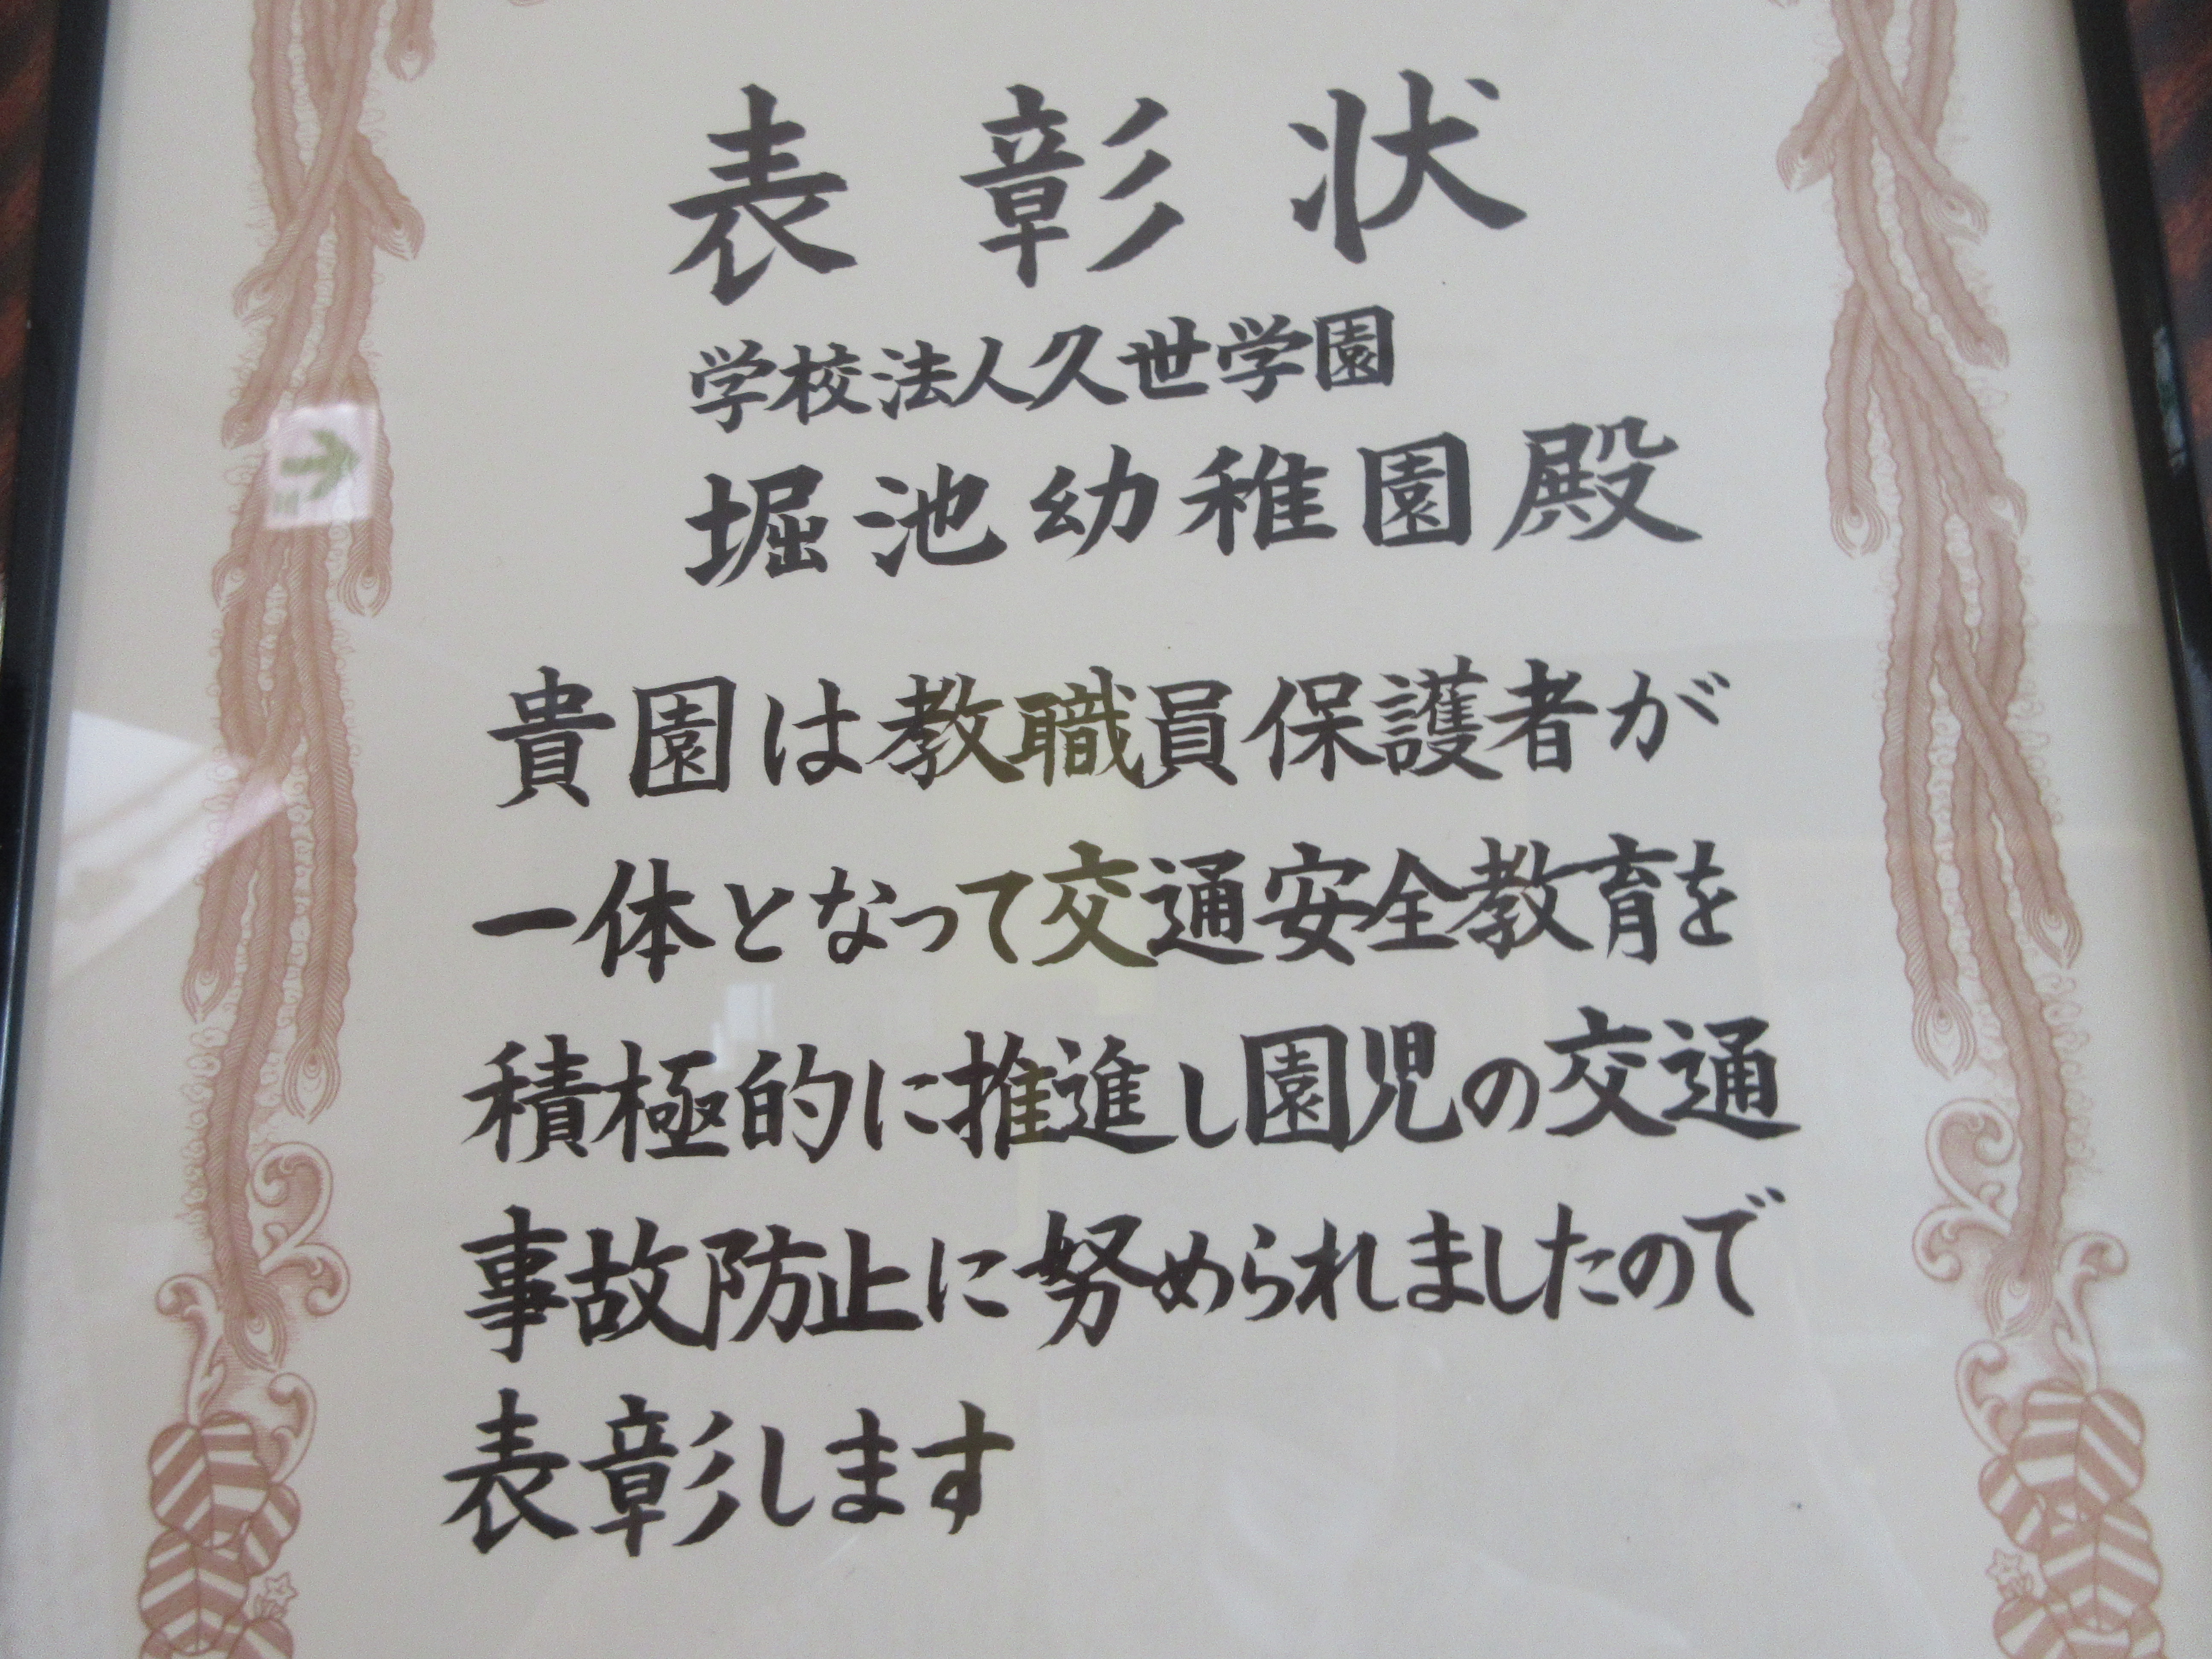 表彰状
学校法人久世学園
堀池幼稚園殿
貴園は教職員保護者が
一体となって交通安全教育を
積極的に推進し園児の交通
事故防止に努められましたので
表彰します